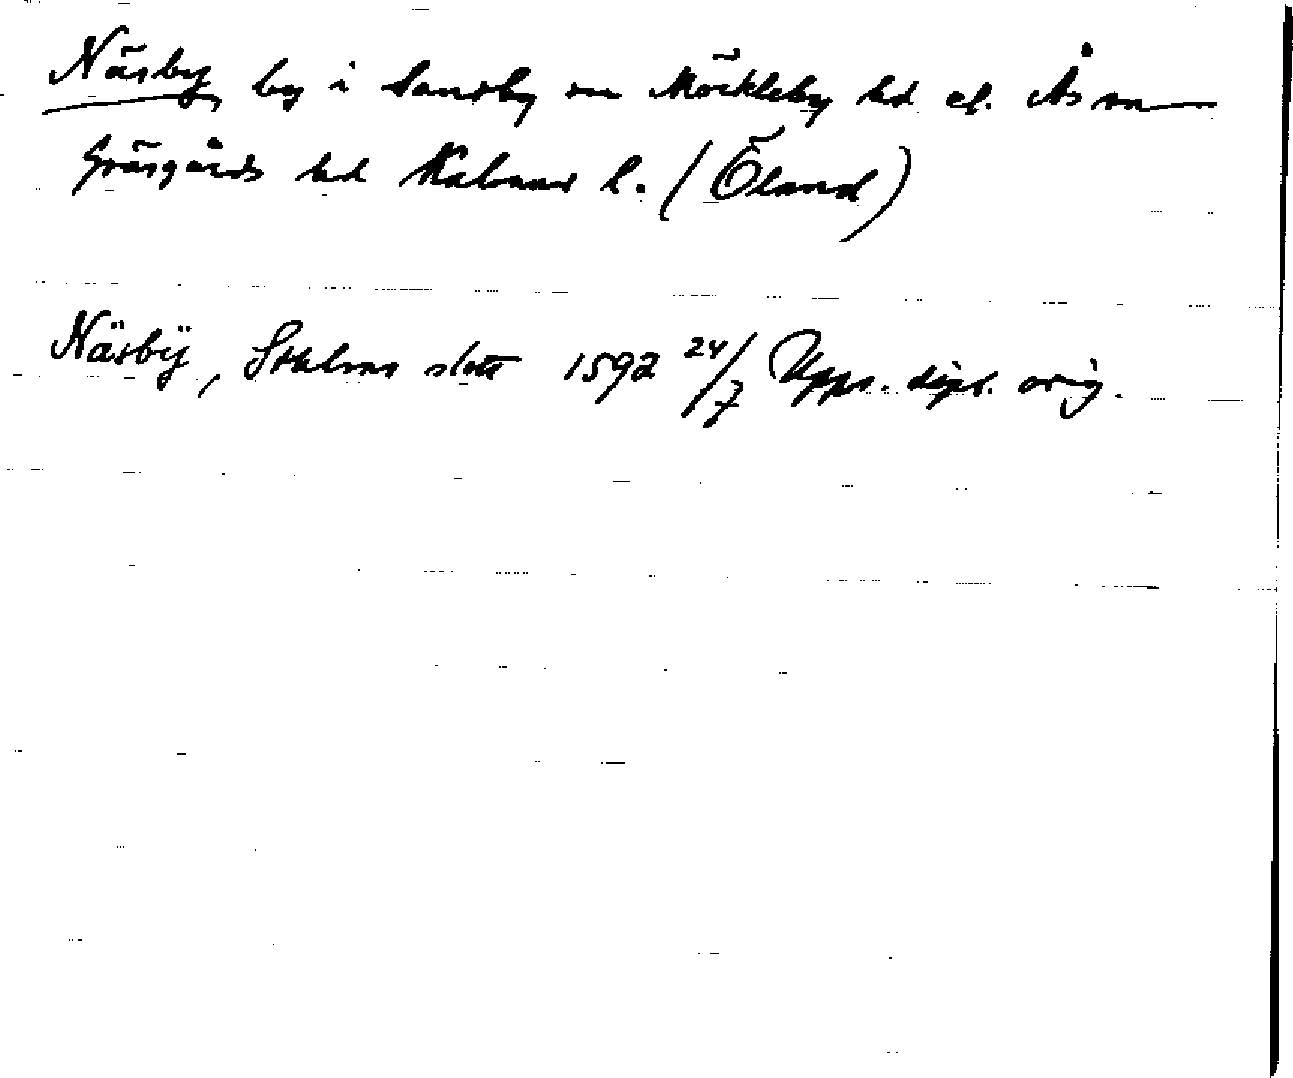 Näsby, by i Sandby sn Möckleby hd el. Ås sn
Gräsgårds hd Kalmar l. (Öland)
Näsbÿ, Sthlms slott 1592 24/7 Upps. dipl. orig.